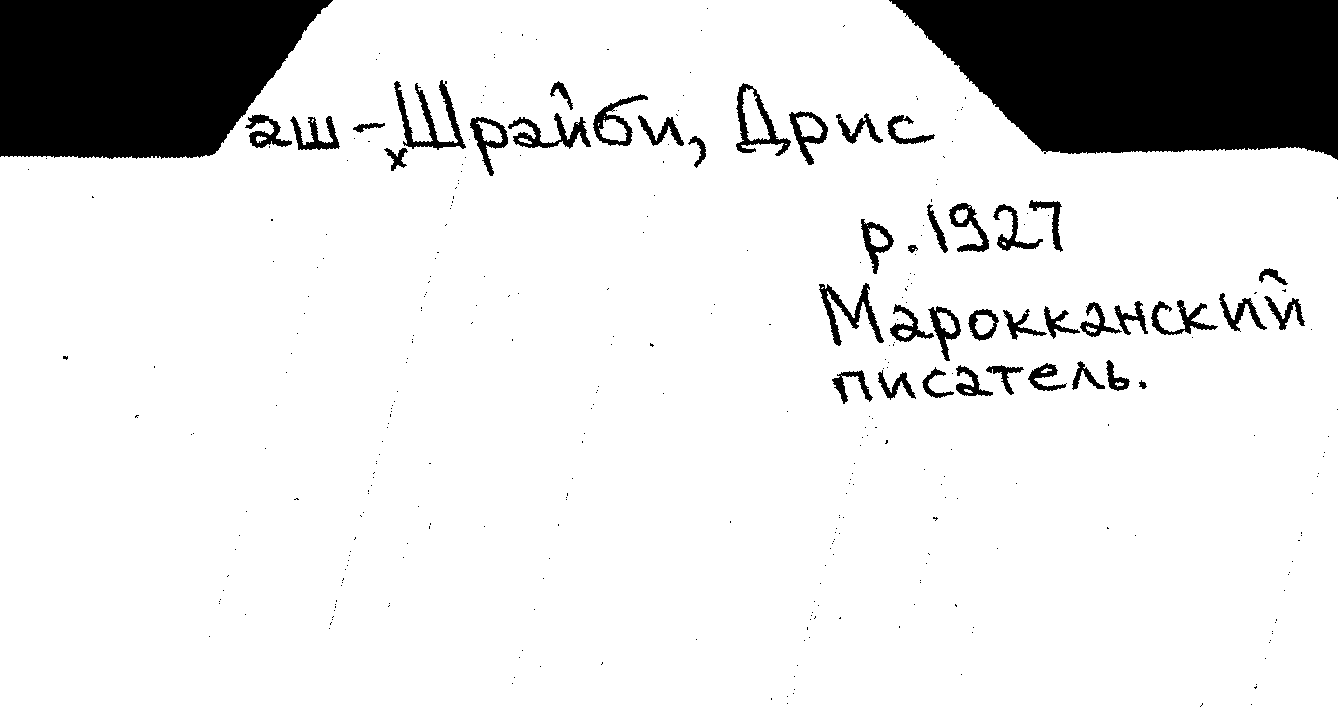 аш-Шрайби, Дрис
х
р. 1927
Марокканский
писатель.